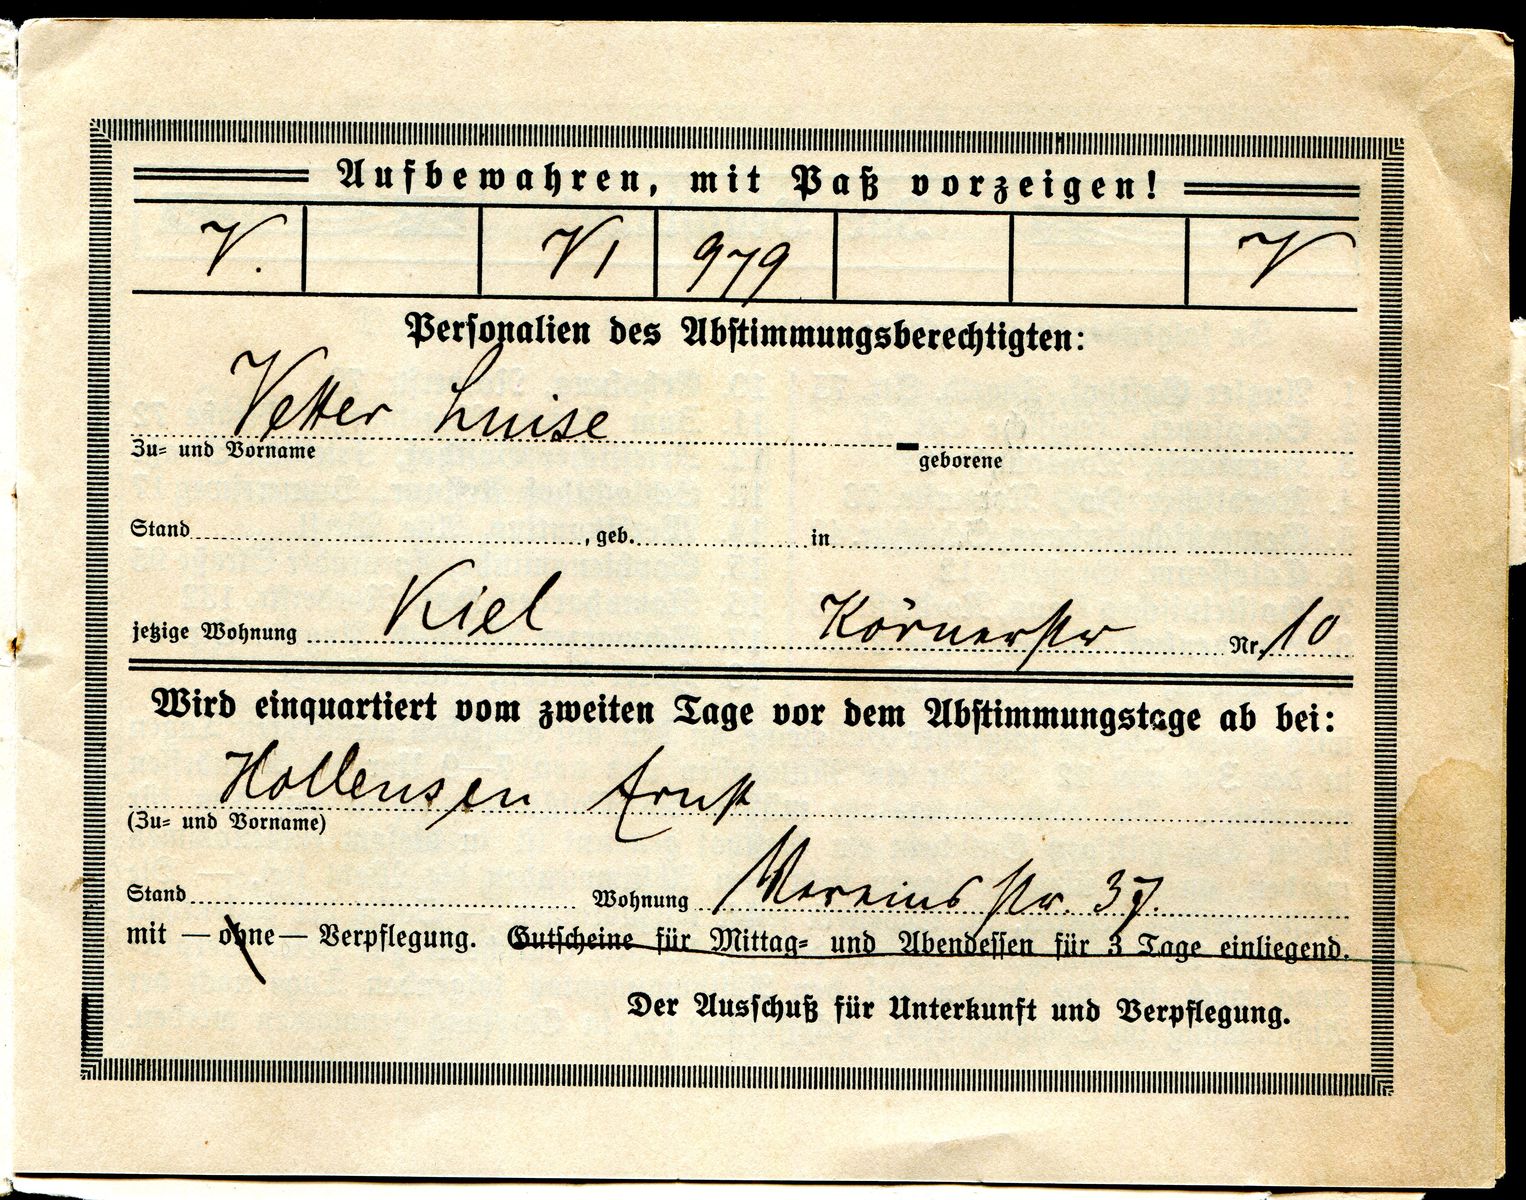 Aufbewahren, mit Paß vorzeigen!
V. VI 979 V
Personalien des Abstimmungsberechtigten:
Vetter Luise
Zu= und Vorname geborene
Stand , geb. in
jetzige Wohnung Kiel Körnerstr Nr. 10
Wird einquartiert vom zweiten Tage vor dem Abstimmungstage ab bei:
Hollensen Ernst
(Zu= und Vorname)
Stand Wohnung Vereinsstr. 37.
mit — ohne — Verpflegung. Gutscheine für Mittag= und Abendessen für 3 Tage einliegend.
Der Ausschuß für Unterkunft und Verpflegung.